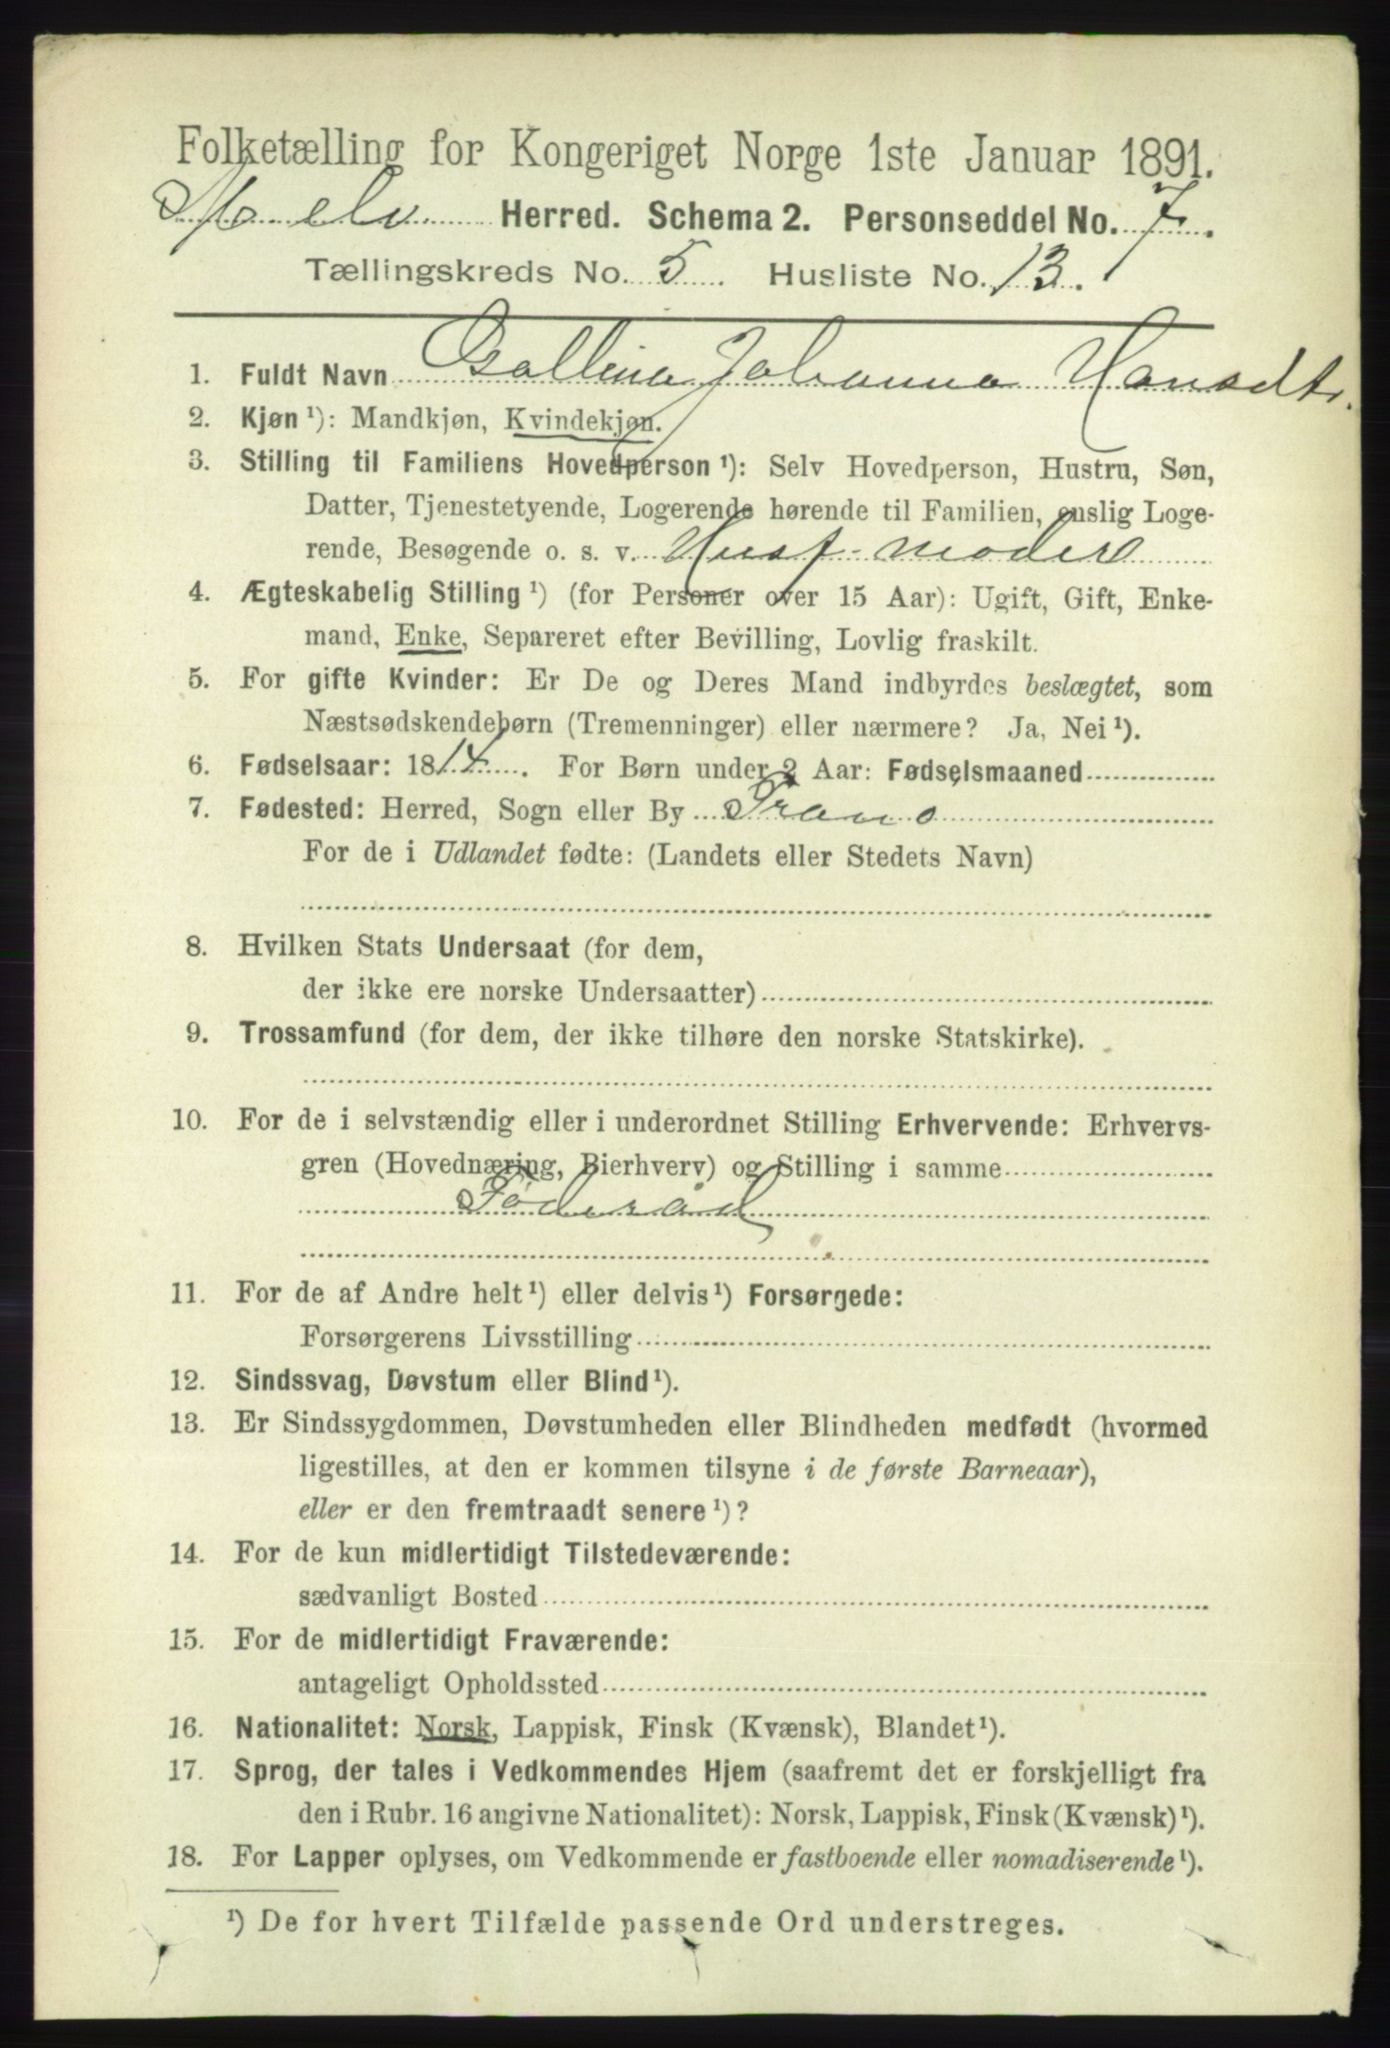 Folketælling for Kongeriget Norge 1ste Januar 1891.
Maelv Herred. Schema 2. Personseddel No. 7.
Tællingskreds No. 5 Husliste No. 13.
1. Fuldt Navn Gollina Johanna Hansdtr.
2. Kjøn ¹): Mandkjøn, Kvindekjøn.
3. Stilling til Familiens Hovedperson ¹): Selv Hovedperson, Hustru, Søn,
Datter, Tjenestetyende, Logerende hørende til Familien, enslig Loge-
rende, Besøgende o. s. v. Husf-moder
4. Ægteskabelig Stilling ¹) (for Personer over 15 Aar): Ugift, Gift, Enke-
mand, Enke, Separeret efter Bevilling, Lovlig fraskilt.
5. For gifte Kvinder: Er De og Deres Mand indbyrdes beslægtet, som
Næstsødskendebørn (Tremenninger) eller nærmere? Ja, Nei ¹).
6. Fødselsaar: 1814. For Børn under 2 Aar: Fødselsmaaned
7. Fødested: Herred, Sogn eller By Tranø
For de i Udlandet fødte: (Landets eller Stedets Navn)
8. Hvilken Stats Undersaat (for dem,
der ikke ere norske Undersaatter)
9. Trossamfund (for dem, der ikke tilhøre den norske Statskirke).
10. For de i selvstændig eller i underordnet Stilling Erhvervende: Erhvervs-
gren (Hovednæring, Bierhverv) og Stilling i samme
Føderåd
11. For de af Andre helt ¹) eller delvis ¹) Forsørgede:
Forsørgerens Livsstilling
12. Sindssvag, Døvstum eller Blind ¹).
13. Er Sindssygdommen, Døvstumheden eller Blindheden medfødt (hvormed
ligestilles, at den er kommen tilsyne i de første Barneaar),
eller er den fremtraadt senere ¹)?
14. For de kun midlertidigt Tilstedeværende:
sædvanligt Bosted
15. For de midlertidigt Fraværende:
antageligt Opholdssted
16. Nationalitet: Norsk, Lappisk, Finsk (Kvænsk), Blandet ¹).
17. Sprog, der tales i Vedkommendes Hjem (saafremt det er forskjelligt fra
den i Rubr. 16 angivne Nationalitet): Norsk, Lappisk, Finsk (Kvænsk) ¹).
18. For Lapper oplyses, om Vedkommende er fastboende eller nomadiserende ¹).
¹) De for hvert Tilfælde passende Ord understreges.